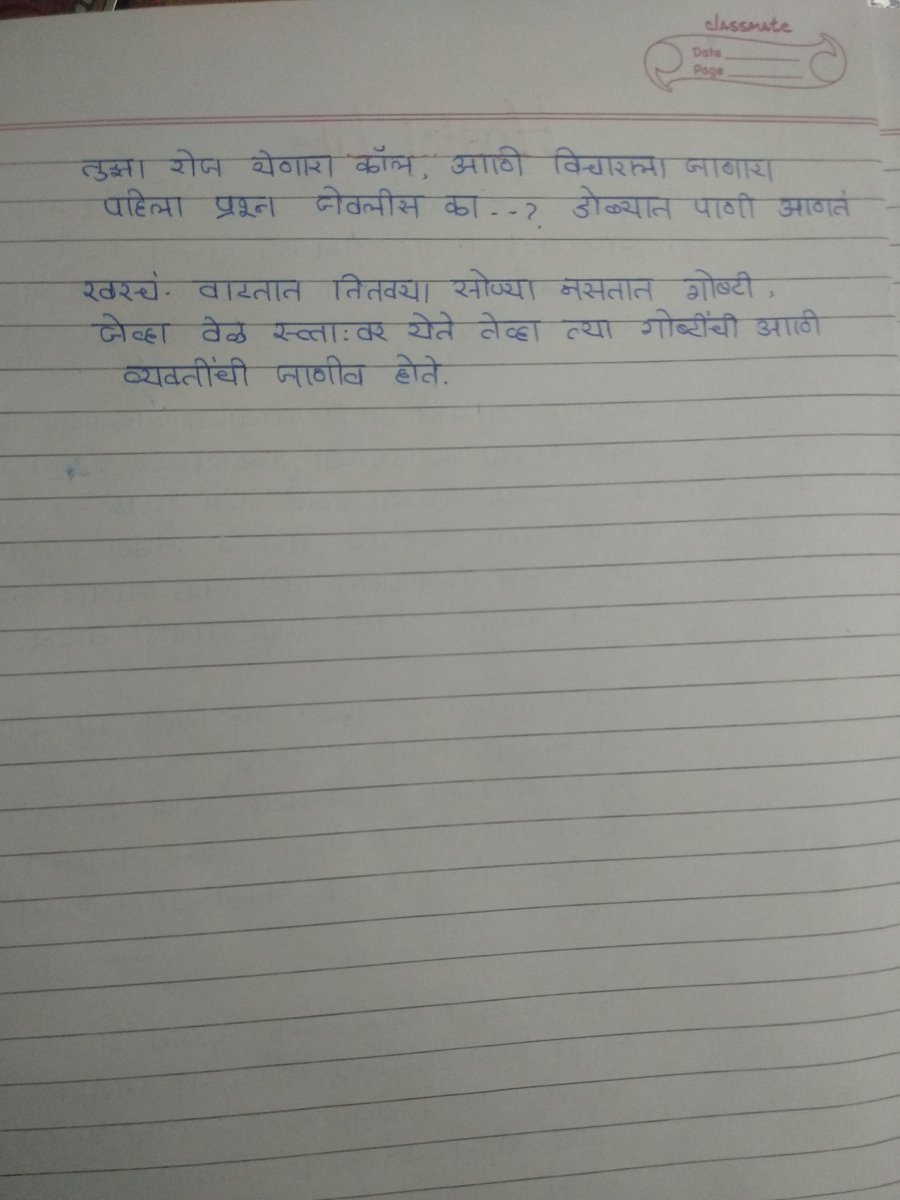 classmate
Date
Page
तुझा रोज येणारा कॉल, आणि विचारला जाणारा
पहिला प्रश्न जेवलीस का--? डोळ्यात पाणी आणतं
खरचं. वाटतात तितक्या सोप्या नसतात गोष्टी,
जेव्हा वेळ स्व्ता:वर येते तेव्हा त्या गोष्टींची आणि
व्यक्तींची जाणीव होते.